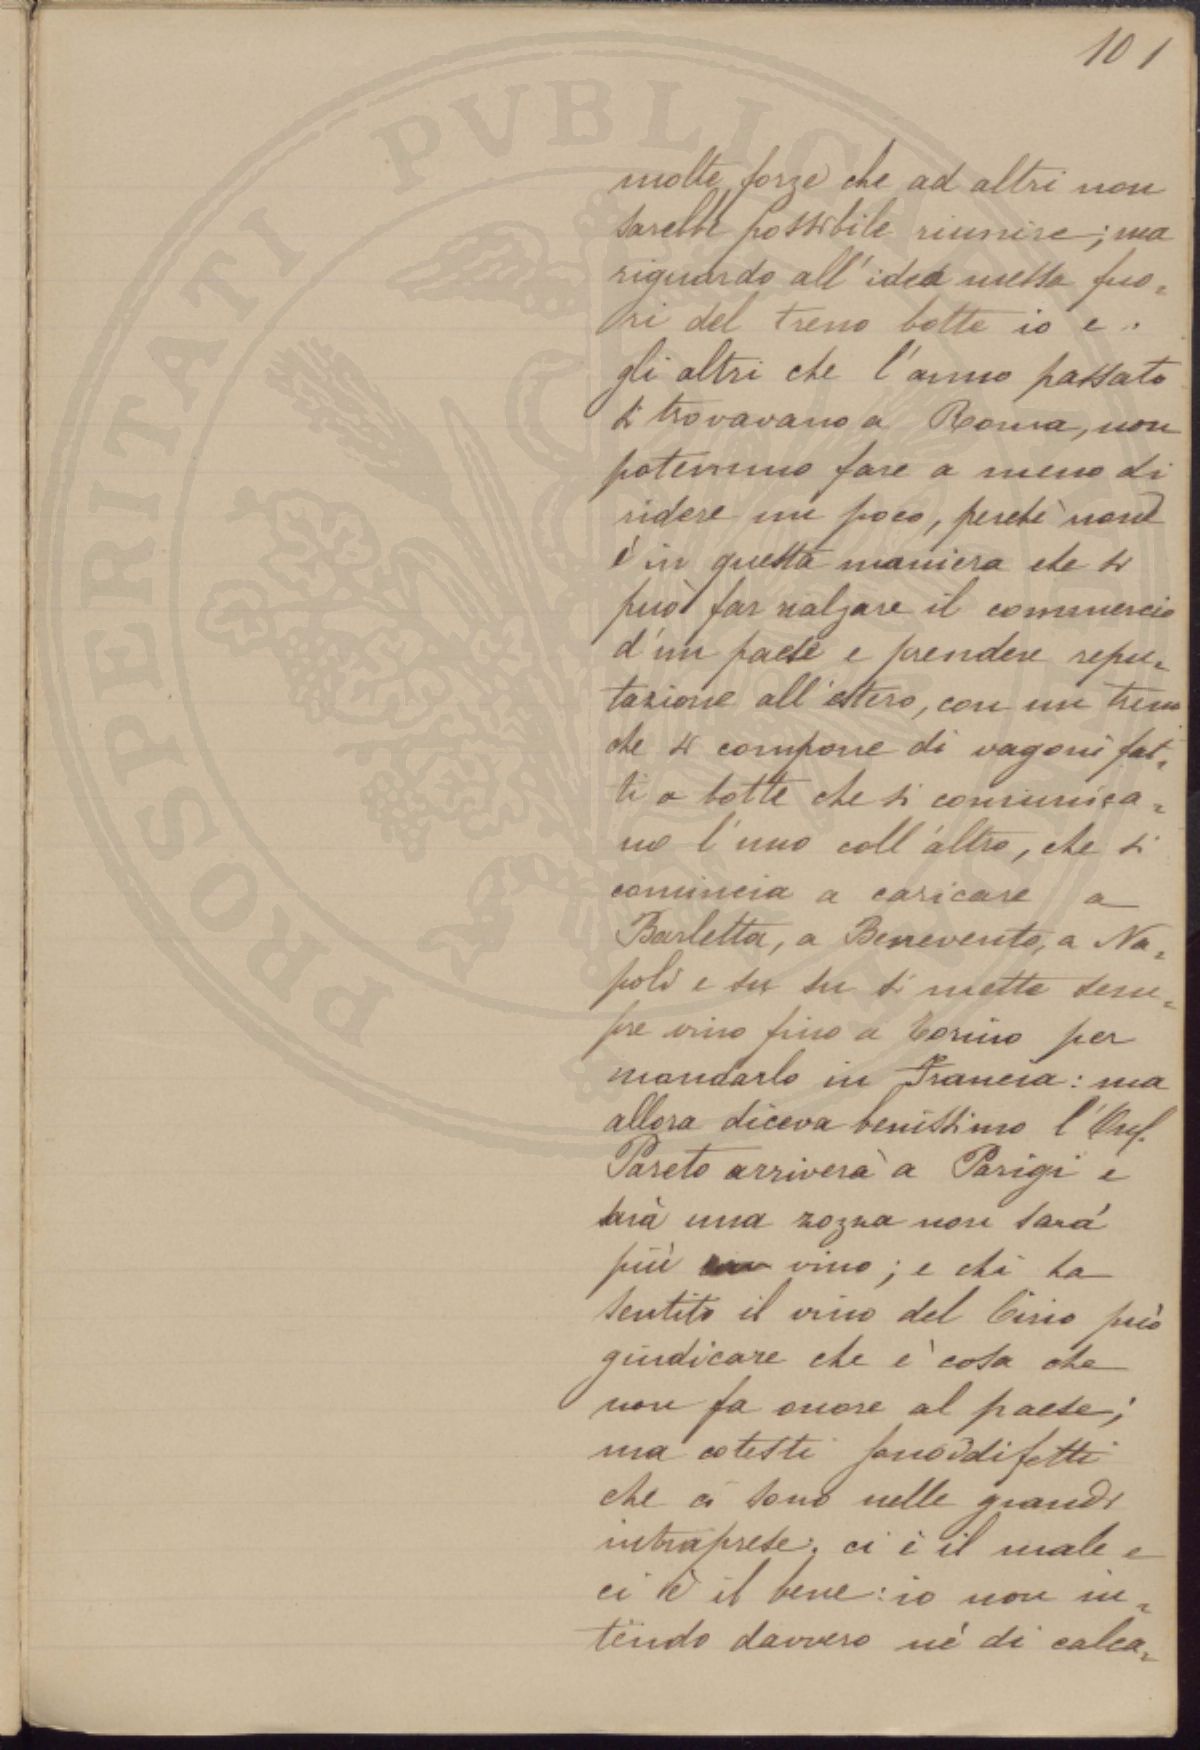 101
molte forze che ad altri non
sarebbe possibile riunire; ma
riguardo all'idea messa fuo=
ri del treno botte io e
gli altri che l'anno passato
si trovavano a Roma, non
potemmo fare a meno di
ridere un poco, perchè non
è in questa maniera che si
può far rialzare il commercio
d'un paese e prendere repu=
tazione all'estero, con un treno
che si compone di vagoni fat=
ti a botte che si comunica=
no l'uno coll'altro, che si
comincia a caricare a
Barletta, a Benevento, a Na=
poli e su su si mette sem=
pre vino fino a Torino per
mandarlo in Francia: ma
allora diceva benissimo l'
Pareto arriverà a Parigi e
sarà una zozza non sarà
più vino; e chi ha
sentito il vino del Cirio può
giudicare che è cosa che
non fa onore al paese;
ma cotesti sono difetti
che ci sono nelle grandi
intraprese. ci è il male e
ci è il bene: io non in=
tendo davvero nè di calca=
PROSPERITATI PVBLICAE